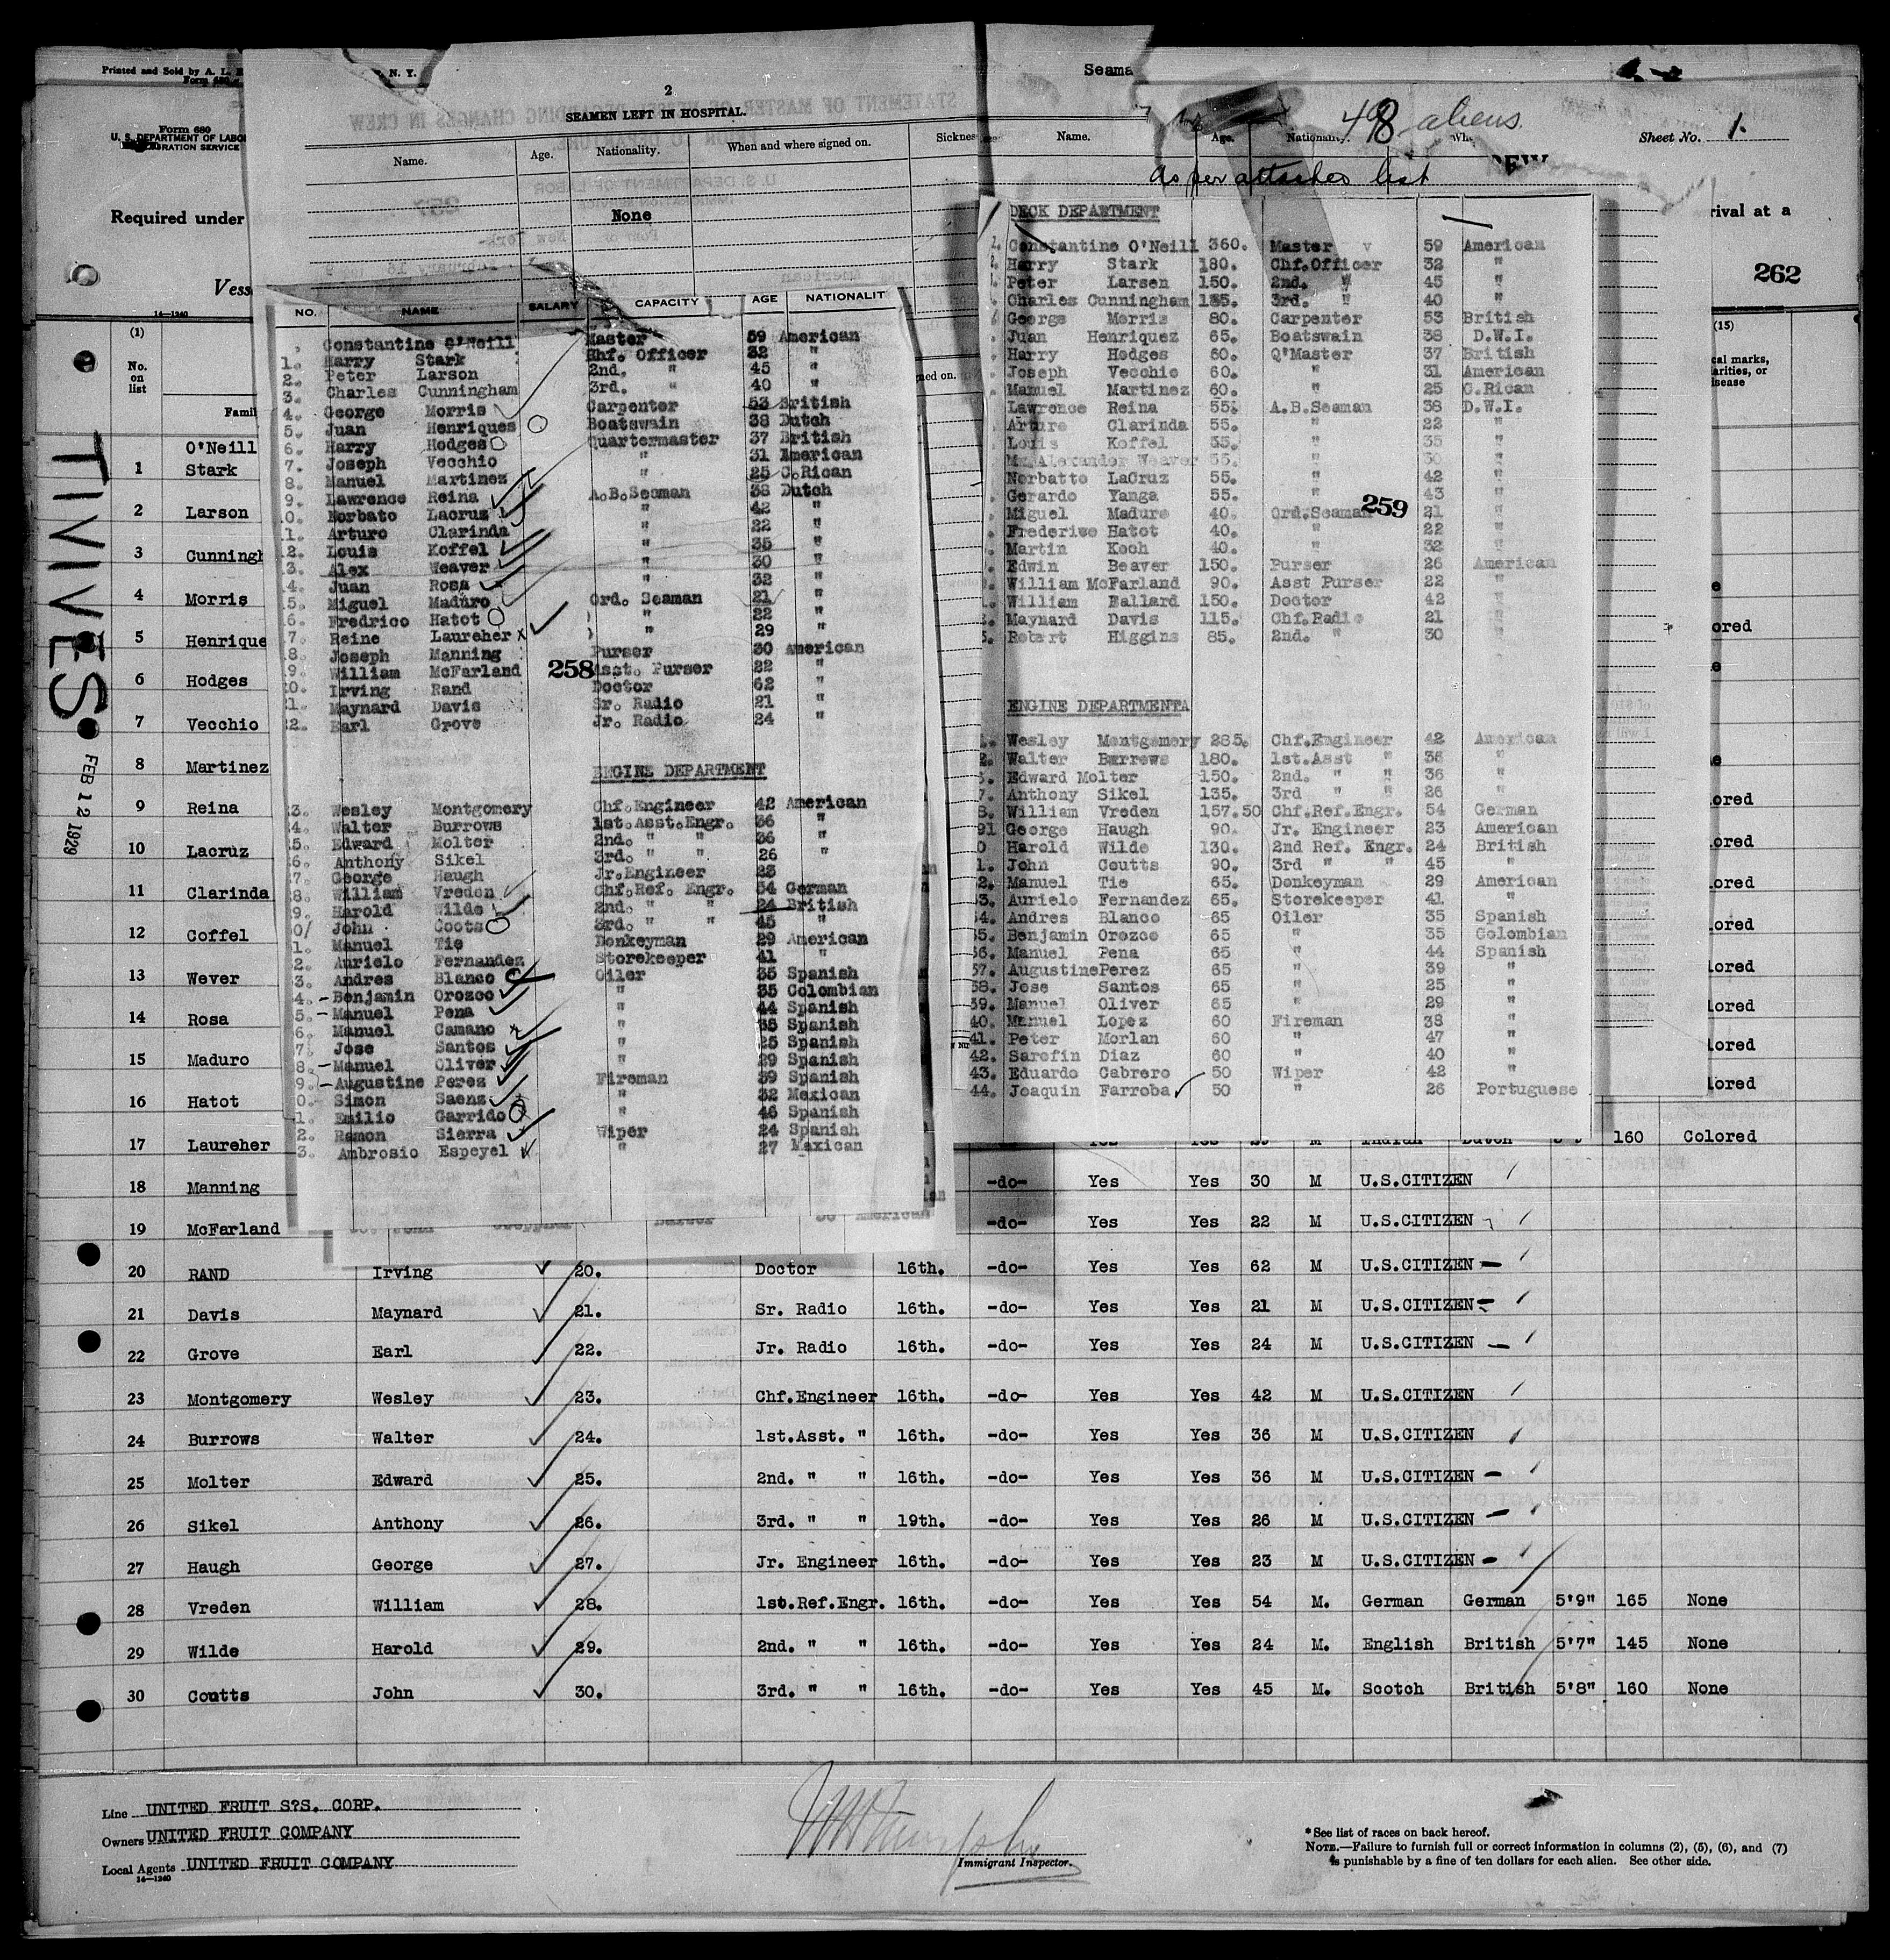 Printed and Sold by A. L.
N. Y.
Form 680
U. S. DEPARTMENT OF LABOR
IMMIGRATION SERVICE
Required under
Vess
14—1240
2
SEAMEN LEFT IN HOSPITAL.
Name. Age. Nationality. When and where signed on. Sickness
None
Seama
Name. Age. Nationality. Wh
48 aliens
Sheet No. 1.
as per attached list
rival at a
262
(1)
No. on list
Famil
(15)
TIVIVES
FEB 12 1929
NO. NAME SALARY CAPACITY AGE NATIONALIT
Constantine O'Neill Master 59 American
1. Harry Stark Chf. Officer 32 "
2. Peter Larson 2nd. " 45 "
3. Charles Cunningham 3rd. " 40 "
4. George Morris Carpenter 53 British
5. Juan Henriques Boatswain 38 Dutch
6. Harry Hodges Quartermaster 37 British
7. Joseph Vecchio " 31 American
8. Manuel Martinez " 25 C.Rican
9. Lawrence Reina A.B.Seaman 38 Dutch
0. Norbato Lacruz " 42 "
1. Arturo Clarinda " 22 "
2. Louis Koffel " 35 "
3. Alex Weaver " 30 "
4. Juan Rosa " 32 "
5. Miguel Maduro Ord. Seaman 21 "
6. Fredrico Hatot " 22 "
7. Reine Laureher " 29 "
8. Joseph Manning Purser 30 American
9. William McFarland Asst. Purser 22 "
0. Irving Rand Doctor 62 "
1. Maynard Davis Sr. Radio 21 "
2. Earl Grove Jr. Radio 24 "
258
ENGINE DEPARTMENT
3. Wesley Montgomery Chf.Engineer 42 American
4. Walter Burrows 1st.Asst.Engr. 36 "
5. Edward Molter 2nd. " " 36 "
6. Anthony Sikel 3rd. " " 26 "
7. George Haugh Jr.Engineer 23
8. William Vreden Chf.Ref. Engr. 54 German
9. Harold Wilde 2nd. " " 24 British
0/ John Coots 3rd. " " 45 "
1. Manuel Tie Donkeyman 29 American
2. Aurielo Fernandez Storekeeper 41 "
3. Andres Blanco Oiler 35 Spanish
4. Benjamin Orozco " 35 Colombian
5. Manuel Pena " 44 Spanish
6. Manuel Camano " 35 Spanish
7. Jose Santos " 25 Spanish
8. Manuel Oliver " 29 Spanish
9. Augustine Perez Fireman 39 Spanish
0. Simon Saenz " 32 Mexican
1. Emilio Garrido " 46 Spanish
2. Ramon Sierra Wiper 24 Spanish
3. Ambrosio Espeyel " 27 Mexican
DECK DEPARTMENT
Constantine O'Neill 360. Master 59 American
Harry Stark 180. Chf.Officer 32 "
Peter Larsen 150. 2nd. " 45 "
Charles Cunningham 135. 3rd. " 40 "
George Morris 80. Carpenter 53 British
Juan Henriquez 65. Boatswain 38 D.W.I.
Harry Hodges 60. Q'Master 37 British
Joseph Vecchio 60. " 31 American
Manuel Martinez 60. " 25 C.Rican
Lawrence Reina 55. A.B.Seaman 38 D.W.I.
Arturo Clarinda 55. " 22 "
Louis Koffel 55. " 35 "
Alexander Weaver 55. " 30 "
Norbatto LaCruz 55. " 42 "
Gerardo Yanga 55. " 43 "
Miguel Madure 40. Ord.Seaman 21 "
259
Frederiwe Hatot 40. " 22 "
Martin Koch 40. " 32 "
Edwin Beaver 150. Purser 26 American
William McFarland 90. Asst Purser 22 "
William Ballard 150. Doctor 42 "
Maynard Davis 115. Chf.Radio 21 "
Robert Higgins 85. 2nd. " 30 "
ENGINE DEPARTMENTA
Wesley Montgomery 285. Chf.Engineer 42 American
2. Walter Burrews 180. 1st.Asst " 36 "
Edward Molter 150. 2nd. " " 36 "
7. Anthony Sikel 135. 3rd " " 26 "
8. William Vreden 157.50 Chf.Ref.Engr. 54 German
91 George Haugh 90. Jr. Engineer 23 American
0 Harold Wilde 130. 2nd Ref. Engr. 24 British
1. John Coutts 90. 3rd " " 45 "
2. Manuel Tie 65. Donkeyman 29 American
3. Aurielo Fernandez 65. Storekeeper 41 "
34. Andres Blanco 65 Oiler 35 Spanish
35. Benjamin Orozco 65 " 35 Colombian
36. Manuel Pena 65 " 44 Spanish
37. Augustine Perez 65 " 39 "
38. Jose Santos 65 " 25 "
39. Manuel Oliver 65 " 29 "
40. Manuel Lopez 60 Fireman 38 "
41. Peter Morlan 60 " 47 "
42. Sarefin Diaz 60 " 40 "
43. Eduardo Cabrero 50 Wiper 42 "
44. Joaquin Farroba 50 " 26 Portuguese
O'Neill
1 Stark
2 Larson
3 Cunningh
4 Morris
5 Henrique
6 Hodges
7 Vecchio
8 Martinez
9 Reina
10 Lacruz
11 Clarinda
12 Coffel
13 Wever
14 Rosa
15 Maduro
16 Hatot
17 Laureher 160 Colored
18 Manning -do- Yes Yes 30 M U.S.CITIZEN
19 McFarland -do- Yes Yes 22 M U.S.CITIZEN
20 RAND Irving 20. Doctor 16th. -do- Yes Yes 62 M U.S.CITIZEN
21 Davis Maynard 21. Sr. Radio 16th. -do- Yes Yes 21 M U.S.CITIZEN
22 Grove Earl 22. Jr. Radio 16th. -do- Yes Yes 24 M U.S.CITIZEN
23 Montgomery Wesley 23. Chf.Engineer 16th. -do- Yes Yes 42 M U.S.CITIZEN
24 Burrows Walter 24. 1st.Asst. " 16th. -do- Yes Yes 36 M U.S.CITIZEN
25 Molter Edward 25. 2nd. " " 16th. -do- Yes Yes 36 M U.S.CITIZEN
26 Sikel Anthony 26. 3rd. " " 19th. -do- Yes Yes 26 M U.S.CITIZEN
27 Haugh George 27. Jr. Engineer 16th. -do- Yes Yes 23 M U.S.CITIZEN
28 Vreden William 28. 1st.Ref.Engr. 16th. -do- Yes Yes 54 M. German German 5'9" 165 None
29 Wilde Harold 29. 2nd. " " 16th. -do- Yes Yes 24 M. English British 5'7" 145 None
30 Coutts John 30. 3rd. " " 16th. -do- Yes Yes 45 M. Scotch British 5'8" 160 None
Line UNITED FRUIT S?S. CORP.
Owners UNITED FRUIT COMPANY
Local Agents UNITED FRUIT COMPANY
14—1240
Immigrant Inspector.
*See list of races on back hereof.
NOTE.—Failure to furnish full or correct information in columns (2), (5), (6), and (7)
is punishable by a fine of ten dollars for each alien. See other side.